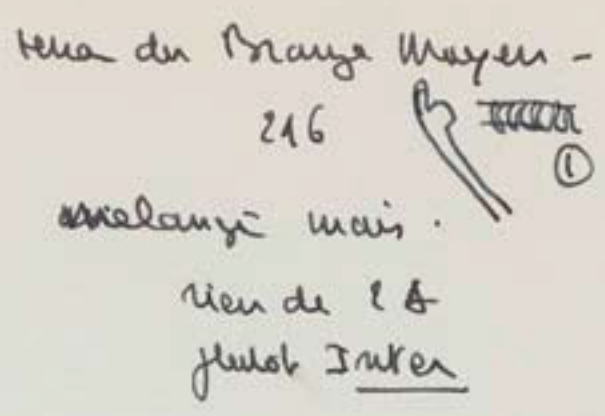 du Bronze Moyen -
216
①
melangé mais.
rien de 2 A
plutot Inter